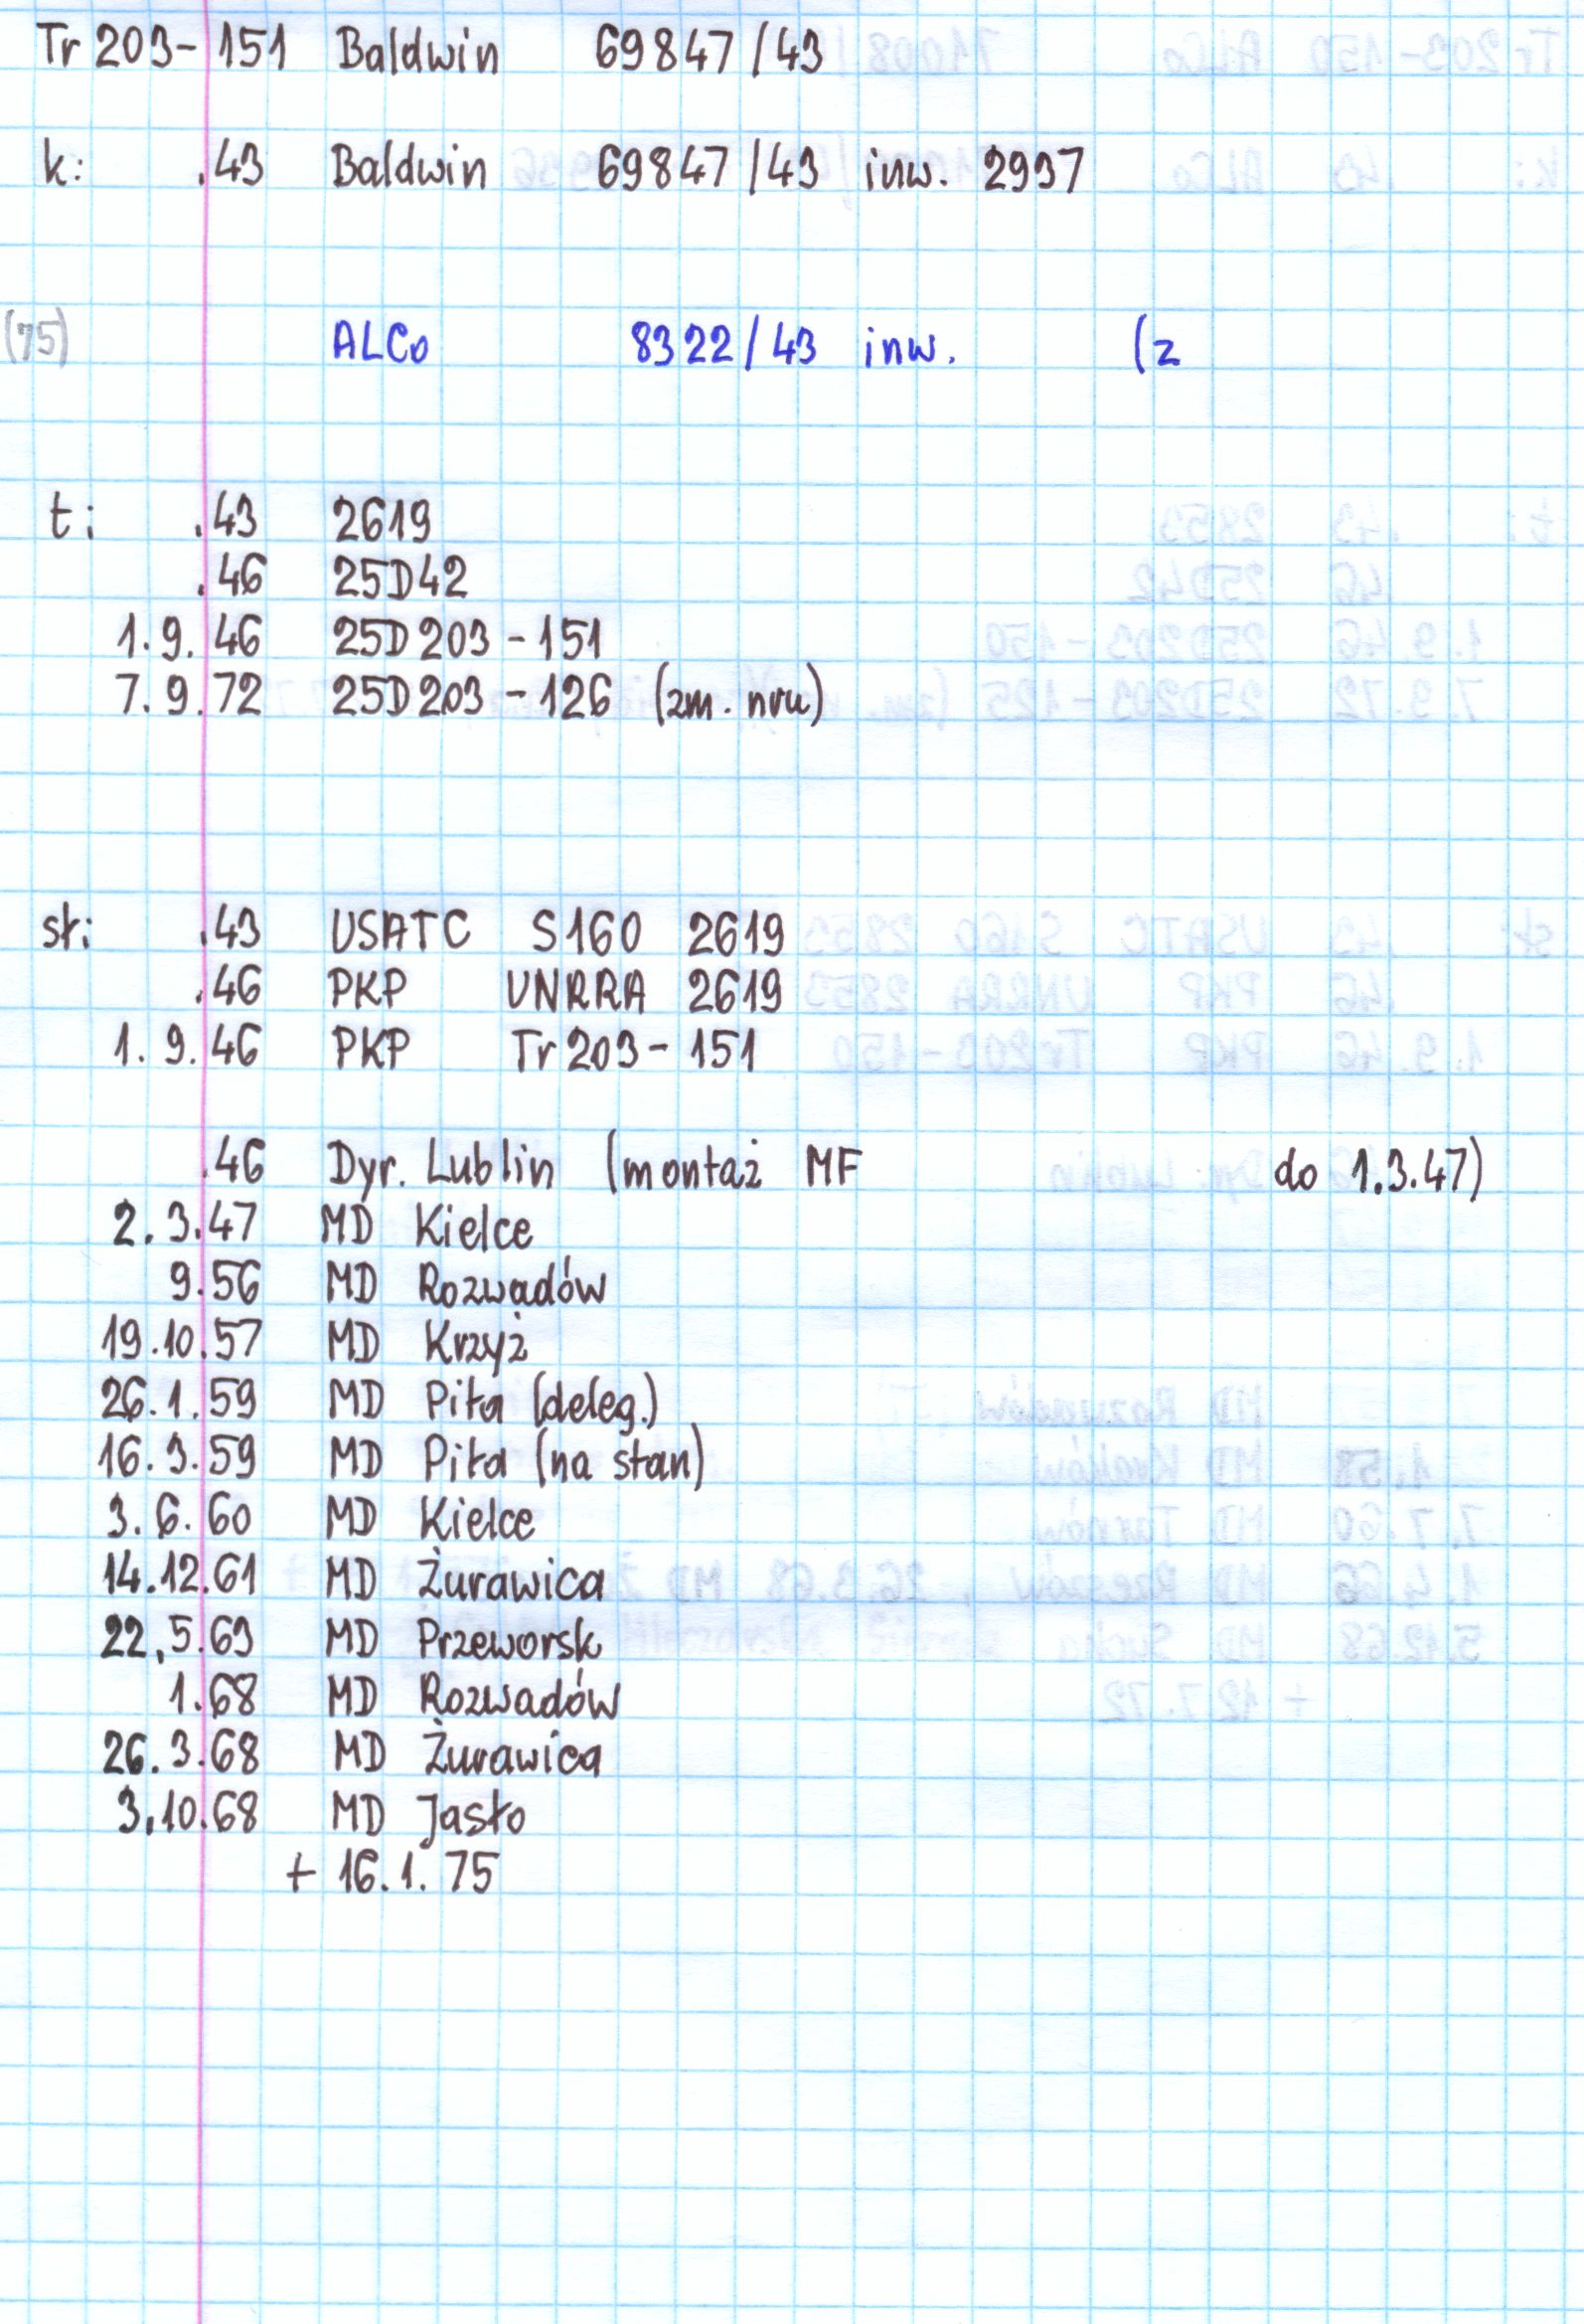 Tr 203-151 Baldwin 69847/43
k: .43 Baldwin 69847/43 inw. 2937
(75) ALCo 8322/43 inw. (z
t: .43 2619
.46 25D42
1.9.46 25D203-151
7.9.72 25D203-126 (zm. nru)
sł: .43 USATC S160 2619
.46 PKP UNRRA 2619
1.9.46 PKP Tr203-151
.46 Dyr. Lublin (montaż MF do 1.3.47)
2.3.47 MD Kielce
9.56 MD Rozwadów
19.10.57 MD Krzyż
26.1.59 MD Piła (deleg.)
16.3.59 MD Piła (na stan)
3.6.60 MD Kielce
14.12.61 MD Żurawica
22.5.63 MD Przeworsk
1.68 MD Rozwadów
26.3.68 MD Żurawica
3.10.68 MD Jasło
+ 16.1.75